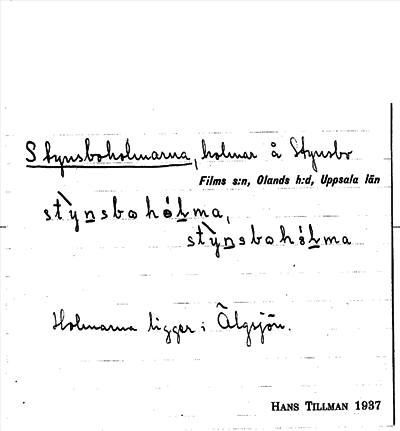 Stynsboholmarna, holmar å Stynsbo
Films s:n, Olands h:d, Uppsala län
stỳnsbohólma,
stỳnsbohólma
Holmarna ligger i Älgsjön.
HANS TILLMAN 1937